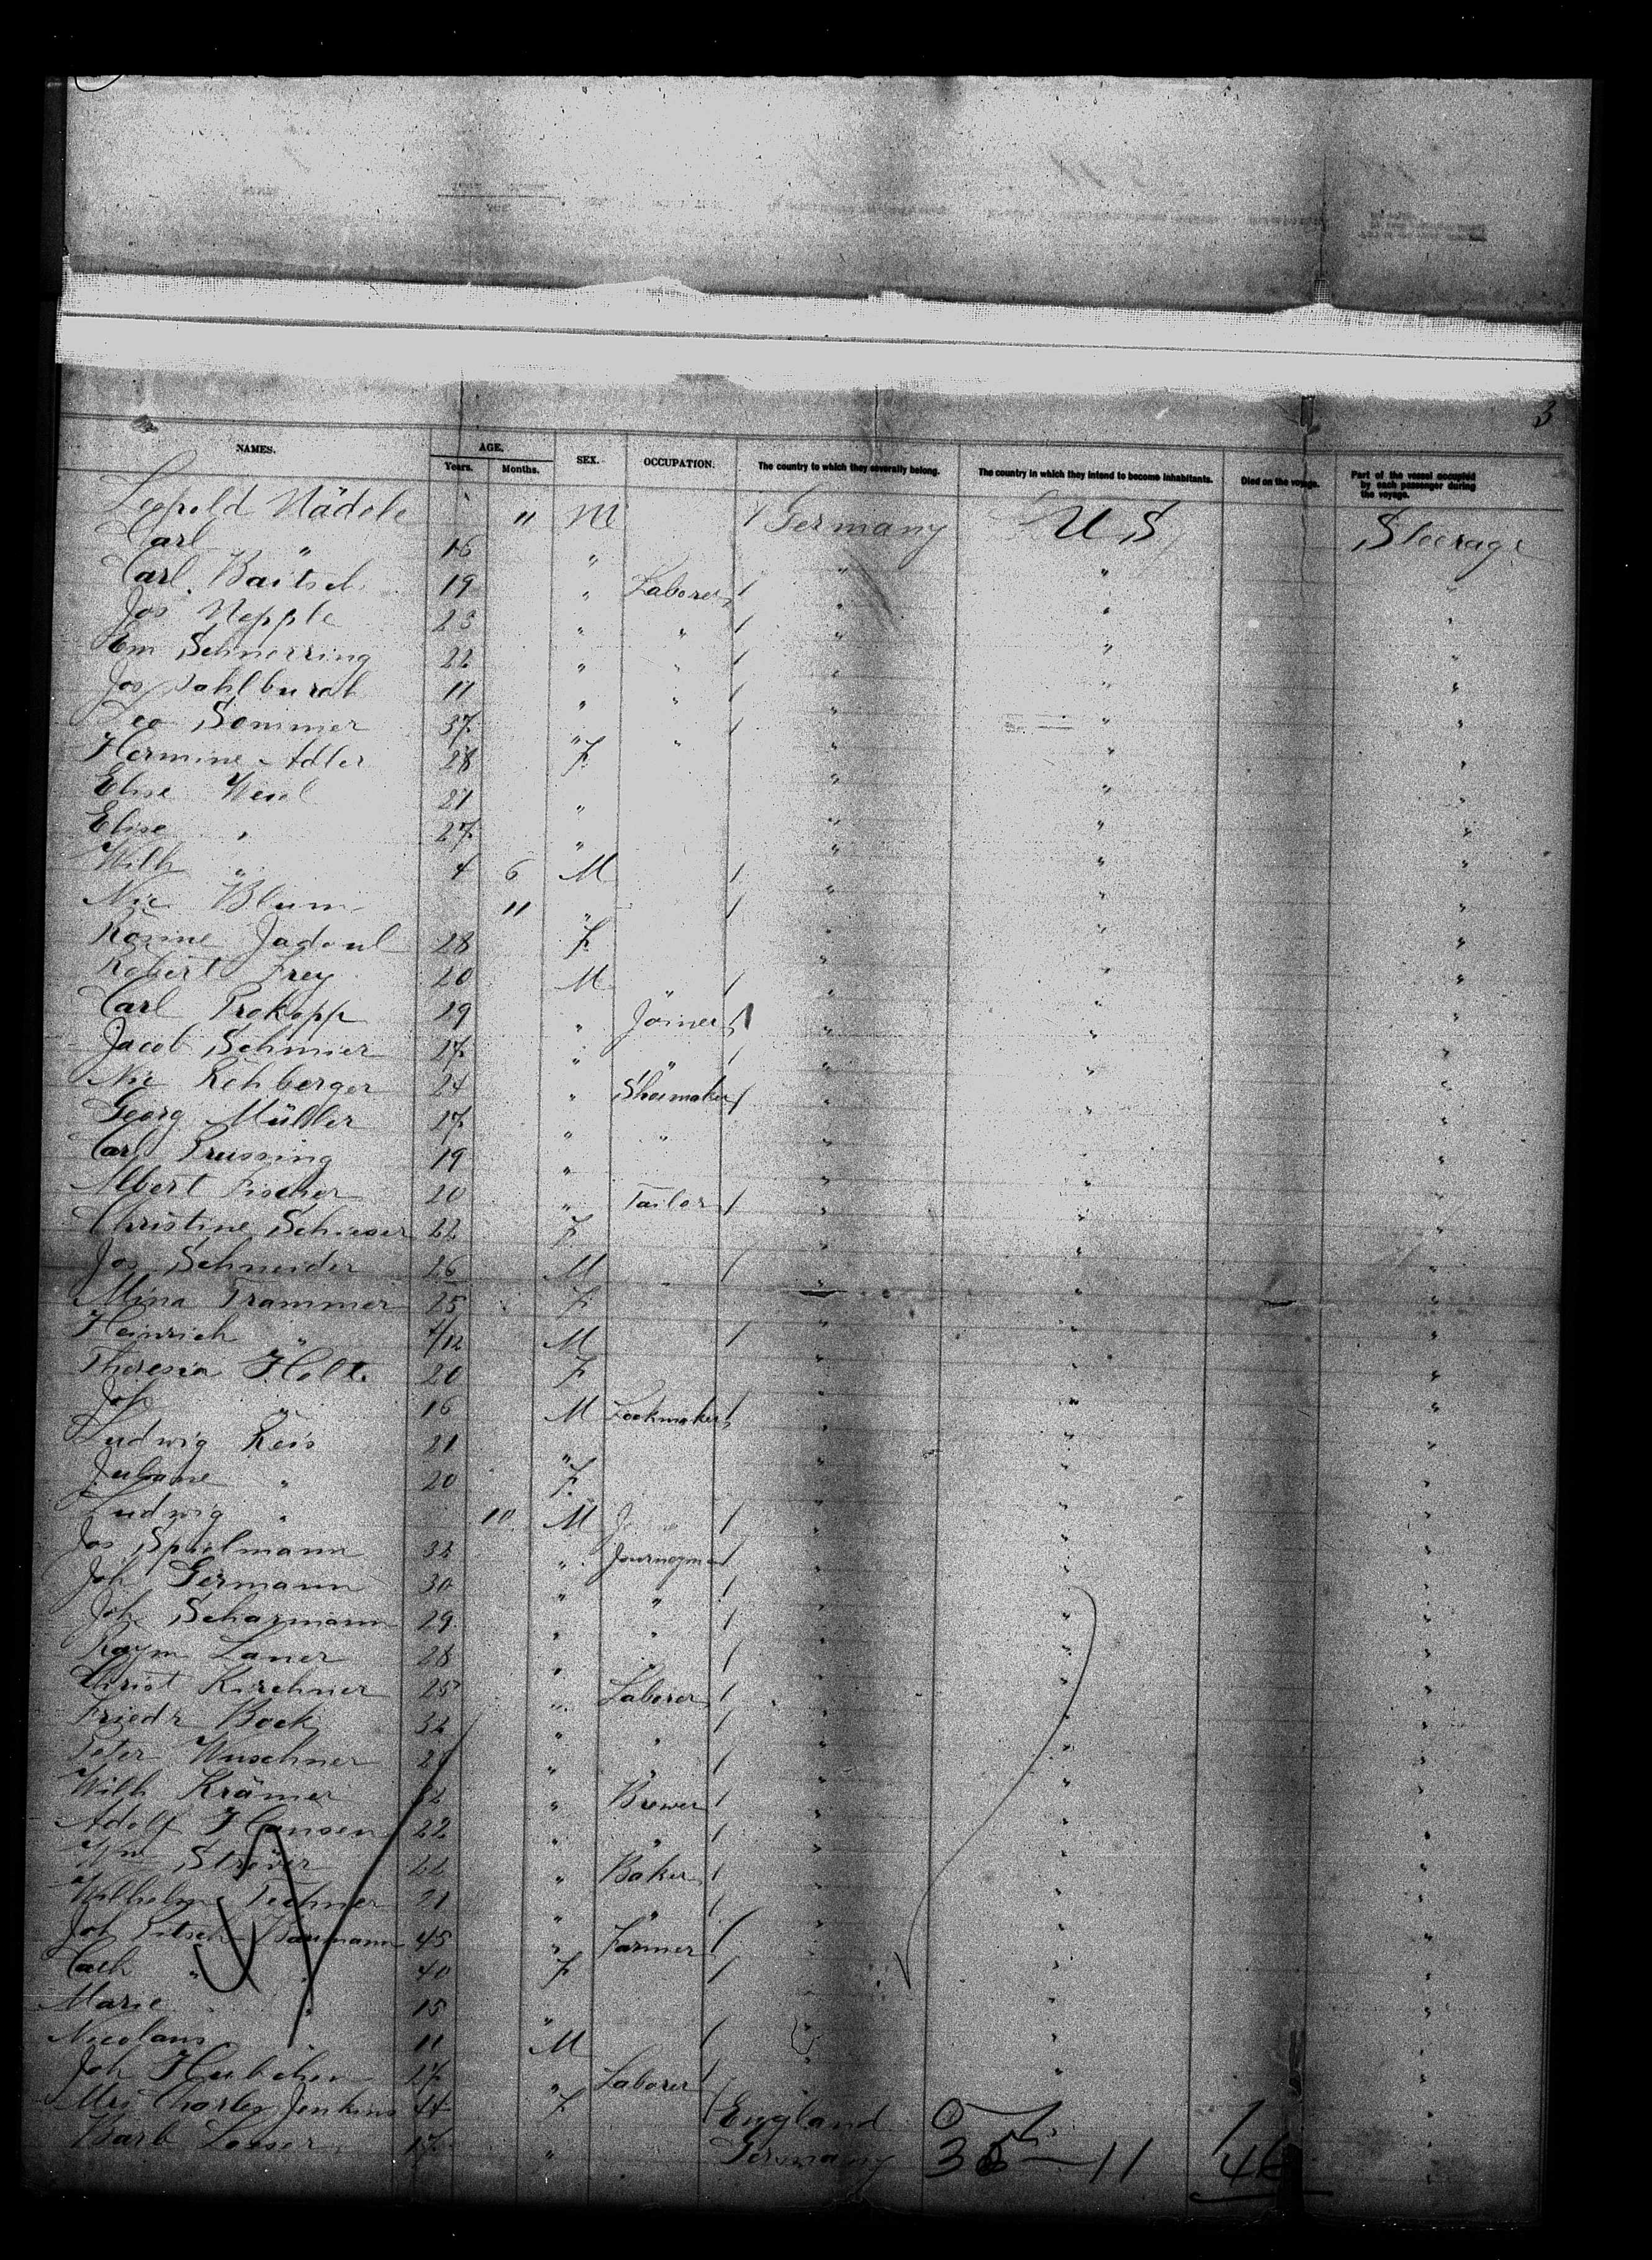 3
NAMES. AGE. SEX. OCCUPATION. The country to which they severally belong. The country in which they intend to become inhabitants. Died on the voyage. Part of the vessel occupied by each passenger during the voyage.
Years. Months.
Leopold Nädele " M Germany U S Steerage
Carl " 16 " " " "
Carl Baitsch 19 " Laborer " " "
Jos Nepple 23 " " " " "
Em Schnerring 22 " " " " "
Jos 11 " " " " "
Leo Sommer 37 " " " " "
Hermine Adler 28 F " " "
Elise 21 " " " "
Elise " 27 " " " "
Wilh " 4 6 M " " "
Nic Blum 11 " " " "
Rosine Jadoul 28 F " " "
Robert Frey 20 M " " "
Carl Prokopp 29 " Joiner " " "
Jacob Schmier 17 " " " " "
Nic Rehberger 24 " Shoemaker " " "
Georg Müller 17 " " " " "
Carl Prussing 19 " " " "
Albert Fischer 20 " Tailor " " "
Christine Schieser 22 F " " "
Jos Schneider 26 M " " "
Mina Trammer 25 F " " "
Heinrich " 4/12 M " " "
Theresia Holt 20 F " " "
Joh " 16 M Lockmaker " " "
Ludwig Reis 21 " " " "
Juliane " 20 F " " "
Ludwig " 10 M J " " "
Jos Spielmann 32 " Journeyman " " "
Joh Germann 30 " " " " "
Joh Scharmann 29 " " " " "
Raym Laner 28 " " " " "
Christ Kirchner 25 " Laborer " " "
Friedr Bock 32 " " " " "
Peter Wuschner " " " " "
Wilh Krämer 32 " Brewer " " "
Adolf Hansen 22 " " " " "
Ströver 22 " Baker " " "
Wilhelm Techner 21 " " " " "
Joh Pitsch Baumann 45 " Farmer " " "
Cath " " 40 F " " "
Marie " " 15 " " " "
Nicolaus " 11 M " " "
Joh Hubchen 17 " Laborer " " "
Mrs Charley Jenkins 44 F England 0 1 1 "
Barb Losser 17 " Germany 35 — 11 46 "